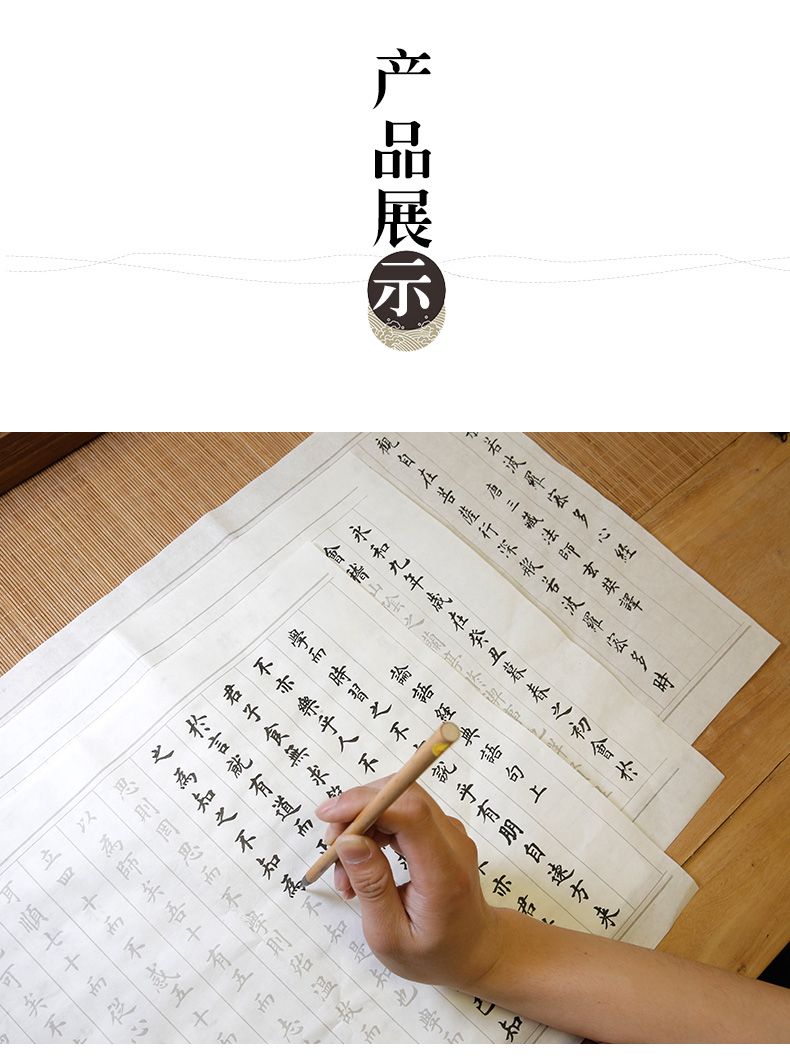 产品展示
若波羅蜜多心經
唐三藏法師玄奘譯
觀自在菩薩行深般若波羅蜜多時
永和九年歲在癸丑暮春之初會於
會稽山陰之蘭亭
論語經典語句上
學而時習之不
說乎有朋自遠方來
不亦樂乎人不
不亦君
君子食無求飽
於言就有道而
已
知
之為知之不知為不知是知也學而
思則罔思而不學則殆溫故而
以為師矣吾十有五而志
立四十而不惑五十
耳順七十而從心
可矣不